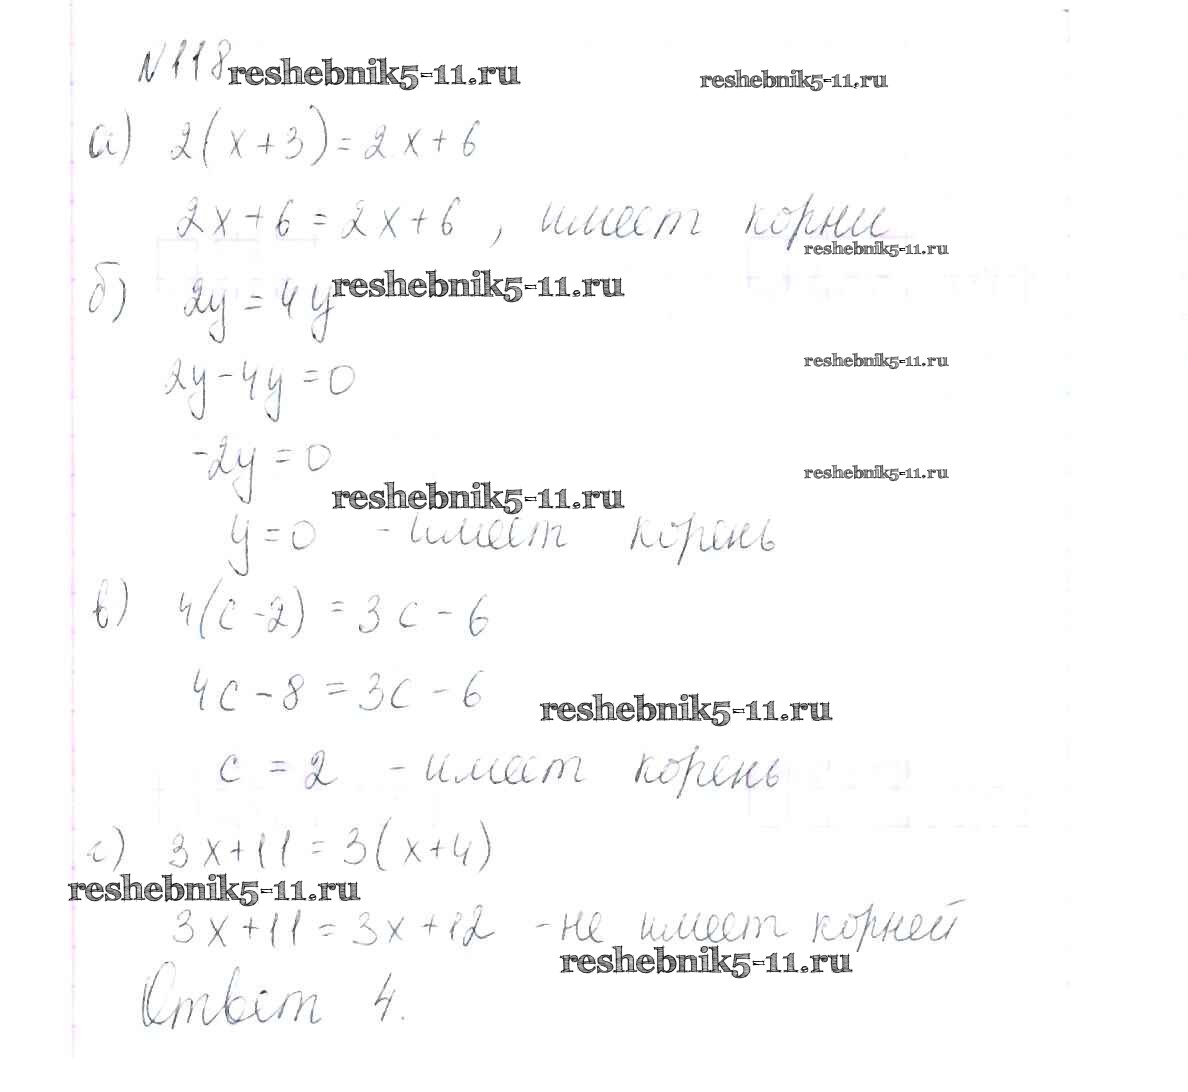 №118 reshebnik5-11.ru reshebnik5-11.ru
а) 2(x+3)=2x+6
2x+6=2x+6, имеет корни
reshebnik5-11.ru
б) 2y=4y reshebnik5-11.ru
reshebnik5-11.ru
2y-4y=0
-2y=0
reshebnik5-11.ru
reshebnik5-11.ru
y=0 - имеет корень
в) 4(c-2)=3c-6
4c-8=3c-6
reshebnik5-11.ru
c=2 - имеет корень
г) 3x+11=3(x+4)
reshebnik5-11.ru
3x+11=3x+12 - не имеет корней
reshebnik5-11.ru
Ответ 4.